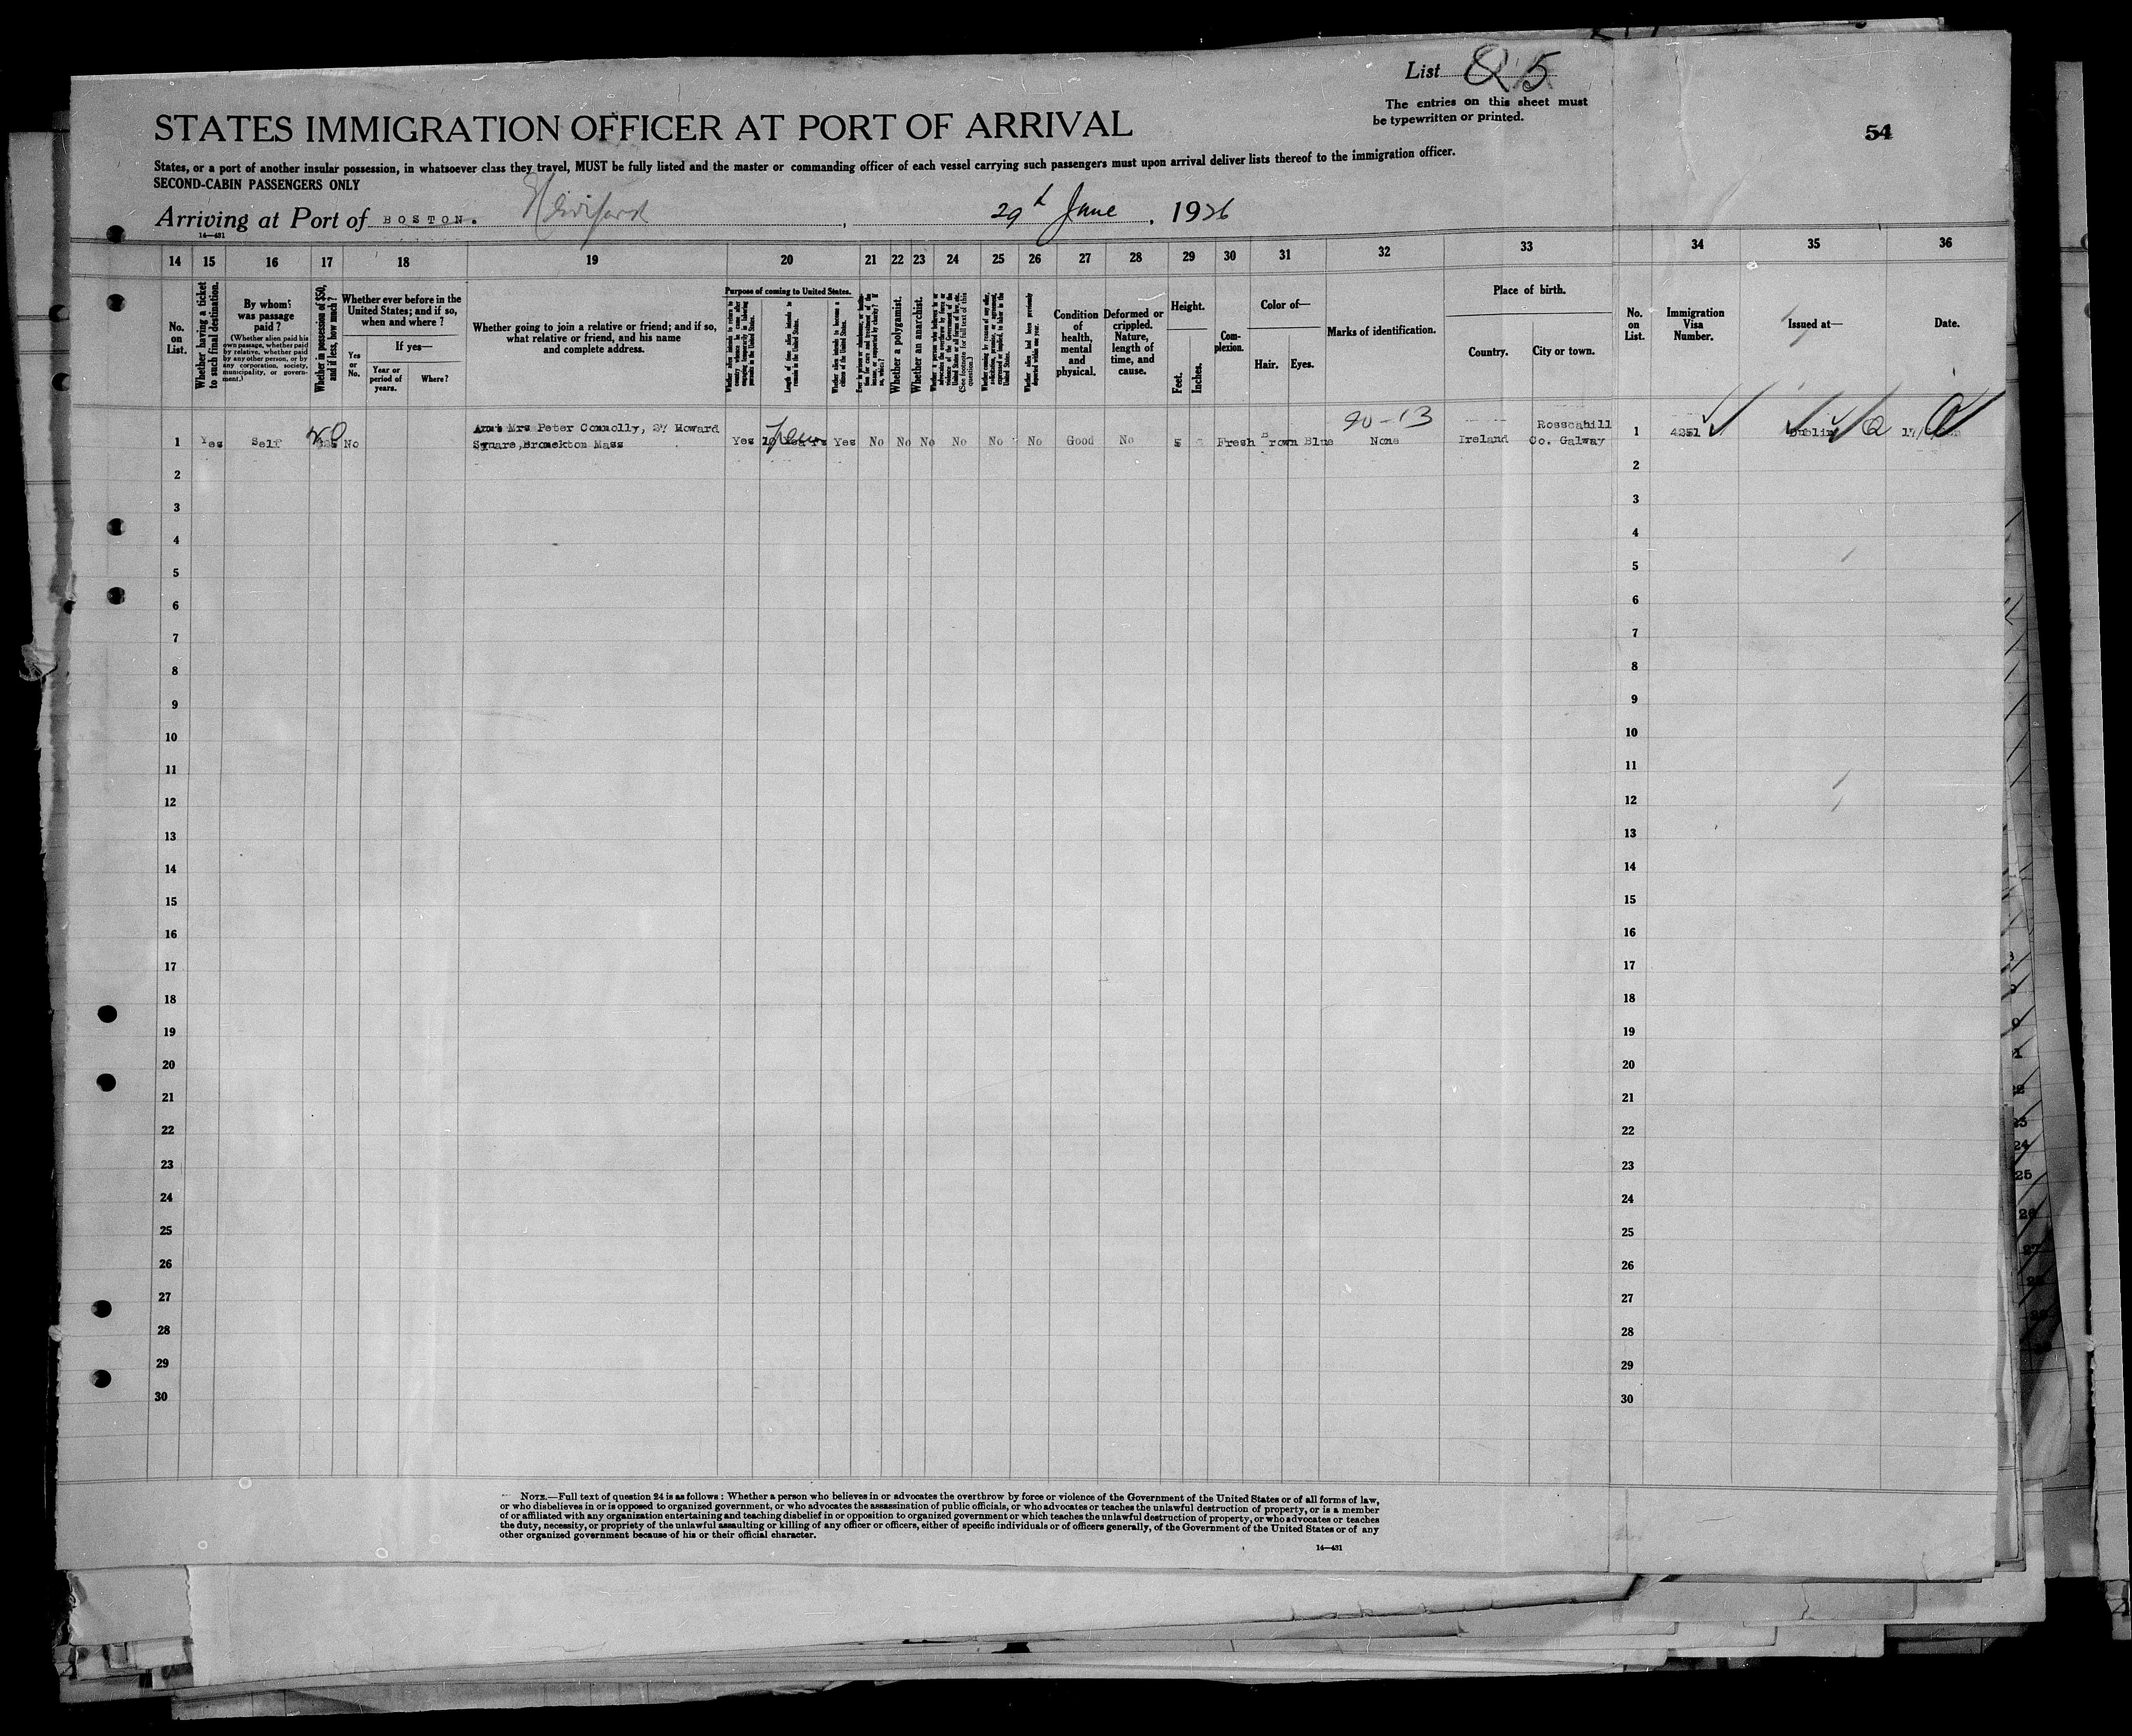 List Q 5
The entries on this sheet must
be typewritten or printed.
54
STATES IMMIGRATION OFFICER AT PORT OF ARRIVAL
States, or a port of another insular possession, in whatsoever class they travel, MUST be fully listed and the master or commanding officer of each vessel carrying such passengers must upon arrival deliver lists thereof to the immigration officer.
SECOND-CABIN PASSENGERS ONLY
Arriving at Port of BOSTON. , 29th June, 1926
14—431
14 15 16 17 18 19 20 21 22 23 24 25 26 27 28 29 30 31 32 33 34 35 36
No. on List.
Whether having a ticket to such final destination.
By whom was passage paid?
(Whether alien paid his own passage, whether paid by relative, whether paid by any other person, or by any corporation, society, municipality, or government.)
Whether in possession of $50, and if less, how much?
Whether ever before in the United States; and if so, when and where?
Yes or No.
If yes—
Year or period of years.
Where?
Whether going to join a relative or friend; and if so, what relative or friend, and his name and complete address.
Purpose of coming to United States.
Whether alien intends to return to country whence he came after engaging temporarily in laboring pursuits in the United States.
Length of time alien intends to remain in the United States.
Whether alien intends to become a citizen of the United States.
Whether a polygamist.
Whether an anarchist.
(See footnote for full text of this question.)
Whether alien had been previously deported within one year.
Condition of health, mental and physical.
Deformed or crippled. Nature, length of time, and cause.
Height.
Feet.
Inches.
Complexion.
Color of—
Hair.
Eyes.
Marks of identification.
Place of birth.
Country.
City or town.
No. on List.
Immigration Visa Number.
Issued at—
Date.
90-13
1 Yes Self No Aunt Mrs Peter Connolly, 27 Howard Rosscahill 1 4251 Dublin
Square, Brockton Mass Yes Yes No No No No No No Good No 5 Fresh Brown Blue None Ireland Co. Galway
2 2
3 3
4 4
5 5
6 6
7 7
8 8
9 9
10 10
11 11
12 12
13 13
14 14
15 15
16 16
17 17
18 18
19 19
20 20
21 21
22 22
23 23
24 24
25 25
26 26
27 27
28 28
29 29
30 30
NOTE.—Full text of question 24 is as follows: Whether a person who believes in or advocates the overthrow by force or violence of the Government of the United States or of all forms of law,
or who disbelieves in or is opposed to organized government, or who advocates the assassination of public officials, or who advocates or teaches the unlawful destruction of property, or is a member
of or affiliated with any organization entertaining and teaching disbelief in or opposition to organized government or which teaches the unlawful destruction of property, or who advocates or teaches
the duty, necessity, or propriety of the unlawful assaulting or killing of any officer or officers, either of specific individuals or of officers generally, of the Government of the United States or of any
other organized government because of his or their official character.
14—431